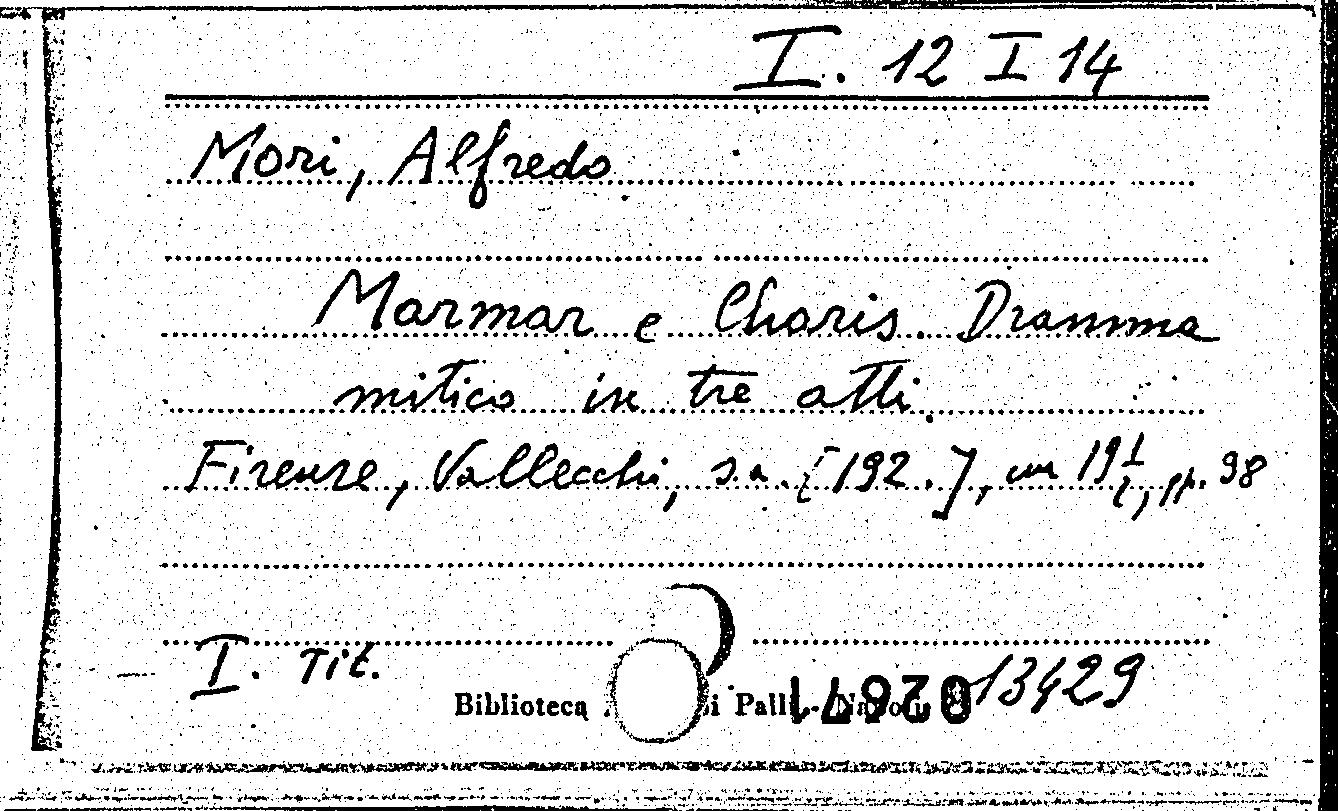 I. 12 I 14
Mori, Alfredo
Marmar e Charis. Dramma
mitico in tre atti.
Firenze, Vallecchi, s.a. [192.], cm 19½, pp. 98
I. Tit.
Biblioteca i Palli - 13429
02671